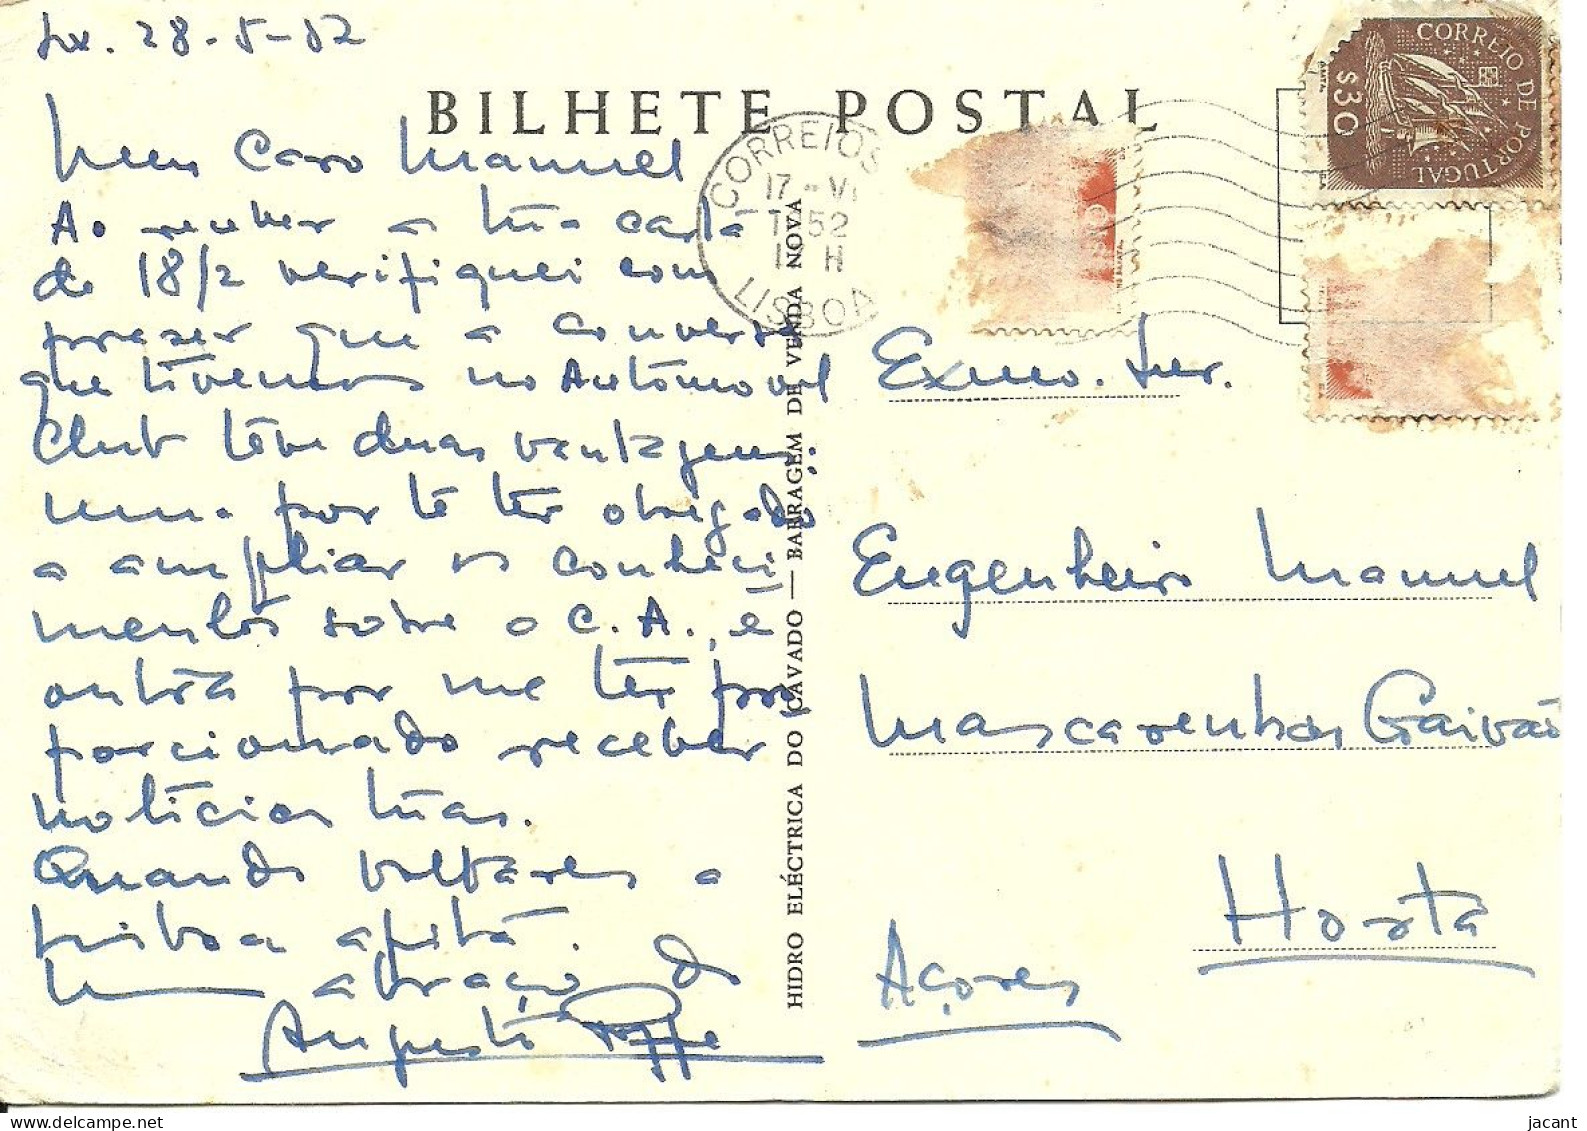 Lx. 28-5-52
BILHETE POSTAL
Meu Caro Manuel
Ao receber a tua carta
de 18/2 verifiquei com
prazer que a conversa
que tivemos no Automovel
Club teve duas vantagens:
uma por te ter obrigado
a ampliar os conheci-
mentos sobre o C.A., e
outra por me ter pro-
porcionado receber
noticias tuas.
Quando voltares a
Lisboa apita.
Um abraço do
Augusto
HIDRO ELÉCTRICA DO CÁVADO — BARRAGEM DE VENDA NOVA
CORREIOS
17-VI
1952
H
LISBOA
CORREIO DE PORTUGAL
$30
Exmo. Snr.
Engenheiro Manuel
Mascarenhas Gaivão
Horta
Açores
jacant